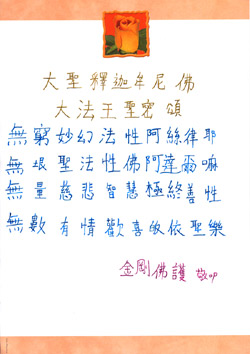 大聖釋迦牟尼佛
大法王聖宏頌
無窮妙幻法性阿絲律耶
無垠聖法性佛阿蓬爾嘛
無量慈悲智慧極終善性
無數有情歡喜皈依聖樂
金剛佛護 敬叩